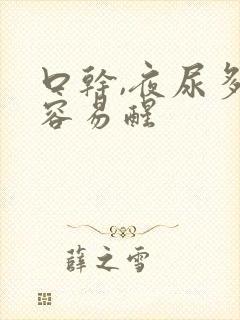 口幹,夜尿多
容易醒
薛之雪